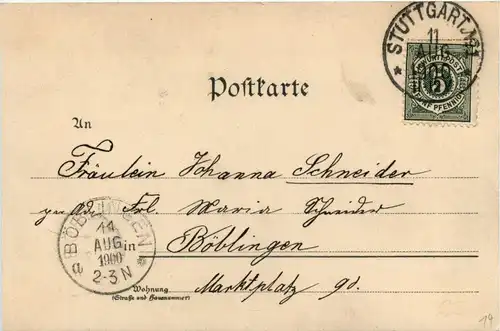 STUTTGART
11
AUG
1900
K. WÜRTT. POST
5
FÜNF PFENNIG
Postkarte
An
Fräulein Johanna Schneider
Frl. Maria Schneider
in Böblingen
Marktplatz 90.
Wohnung
(Straße und Hausnummer)
BÖBLINGEN
11
AUG
1900
2-3 N
a
19